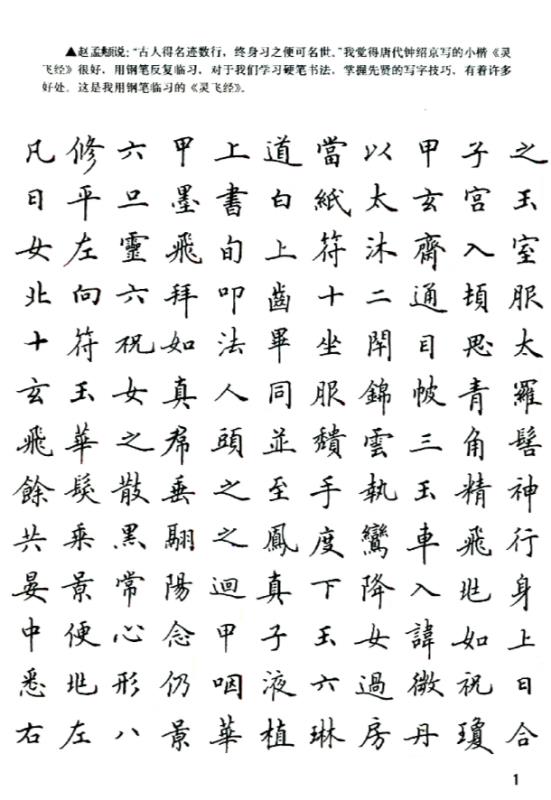 ▲赵孟頫说：“古人得名迹数行，终身习之便可名世。”我觉得唐代钟绍京写的小楷《灵
飞经》很好，用钢笔反复临习，对于我们学习硬笔书法，掌握先贤的写字技巧，有着许多
好处。这是我用钢笔临习的《灵飞经》。
凡修六甲上道當以甲子之
日平旦墨書白紙太玄宮玉
女左靈飛旬上符沐齋入室
北向六拜叩齒十二通頓服
十符祝如法畢坐閉目思太
玄玉女真人同服錦帔青羅
飛華之帬頭並頹雲三角髻
餘髮散垂之至手執玉精神
共乘黑翮之鳳度鸞車飛行
晏景常陽迴真下降入兆身
中便心念甲子玉女諱如上
悉兆形仍咽液六過微祝日
右左八景華植琳房丹瓊合
1